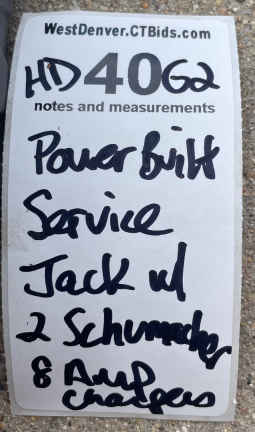 WestDenver.CTBids.com
HD40G2
notes and measurements
Power Built
Service
Jack w/
2 Schumacher
8 Amp
chargers